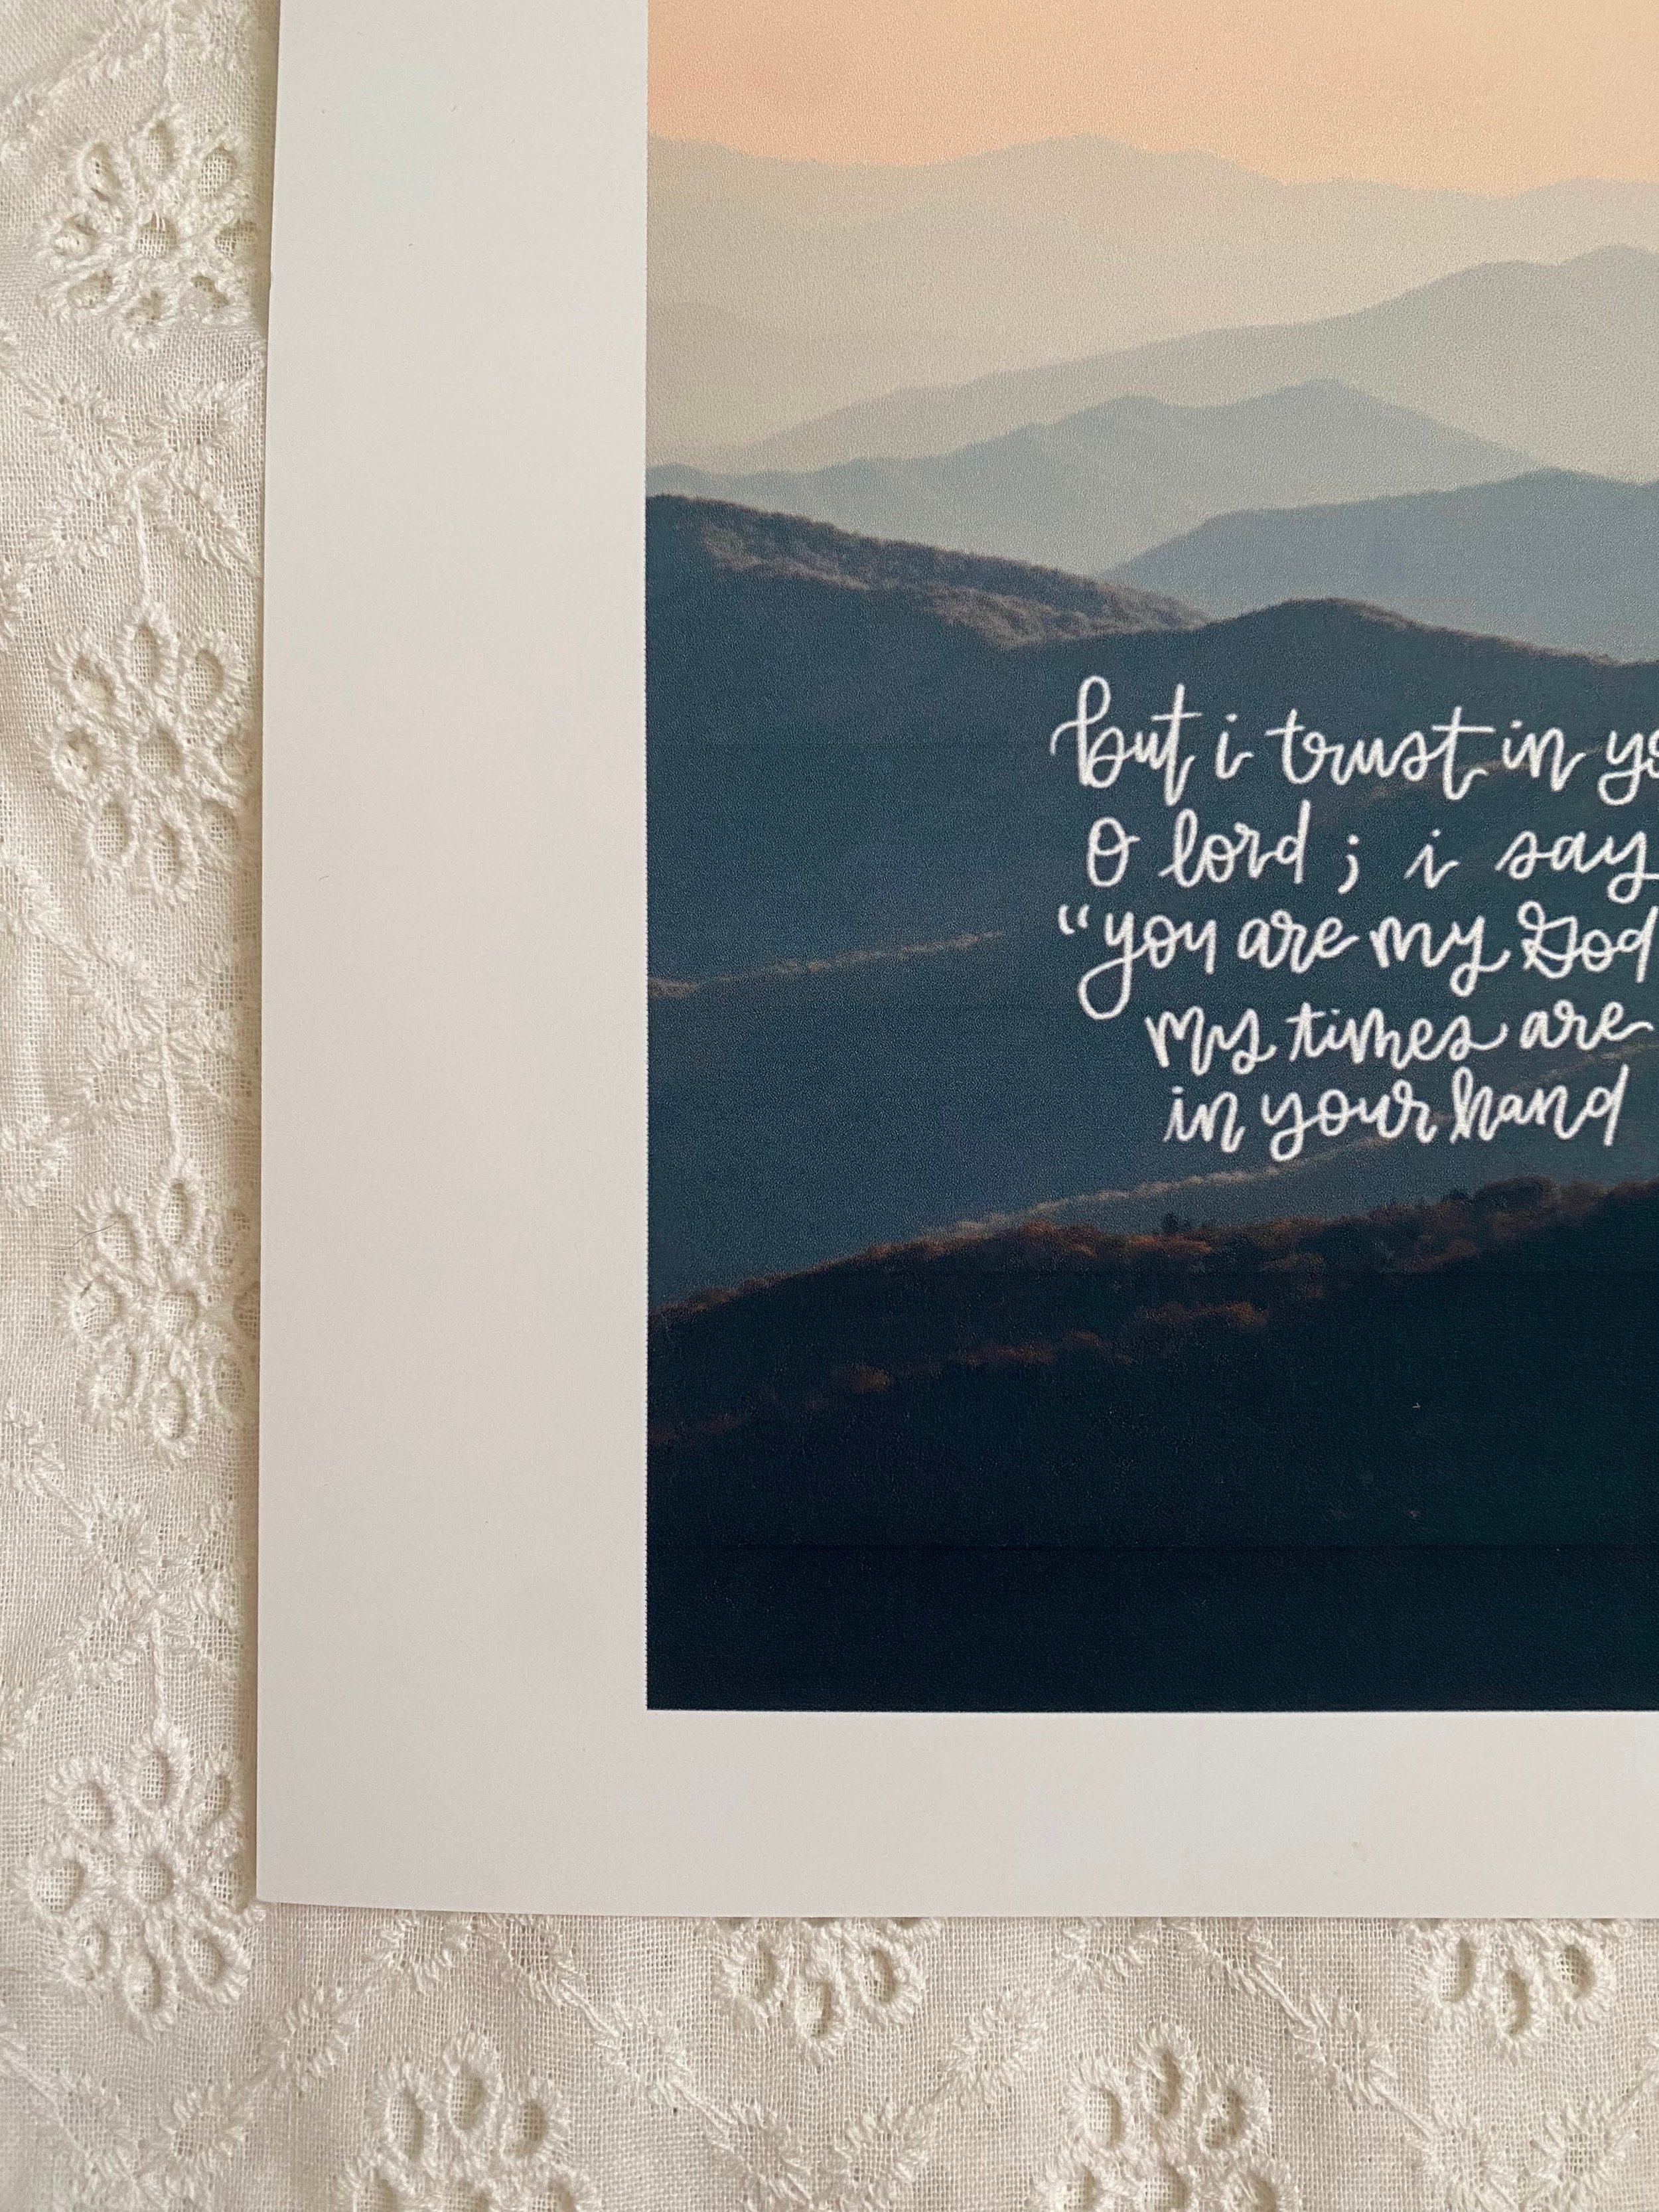 but i trust in yo
O lord ; i say
“you are my God
my times are
in your hand